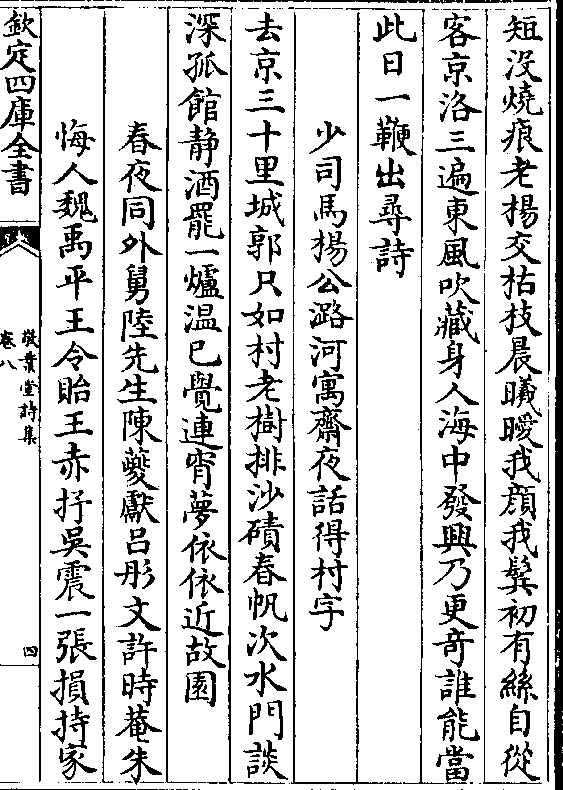 短没燒痕老楊交枯枝晨曦曖我顔我鬂初有絲自從
客京洛三遍東風吹藏身人海中發興乃更竒誰能當
此日一鞭出尋詩
少司馬楊公潞河寓齋夜話得村字
去京三十里城郭只如村老樹排沙磧春帆次水門談
深孤館静酒罷一爐温已覺連宵夢依依近故園
春夜同外舅陸先生陳夔獻吕彤文許時菴朱
悔人魏禹平王令貽王赤抒吳震一張損持家
欽定四庫全書
敬業堂詩集
卷八
四